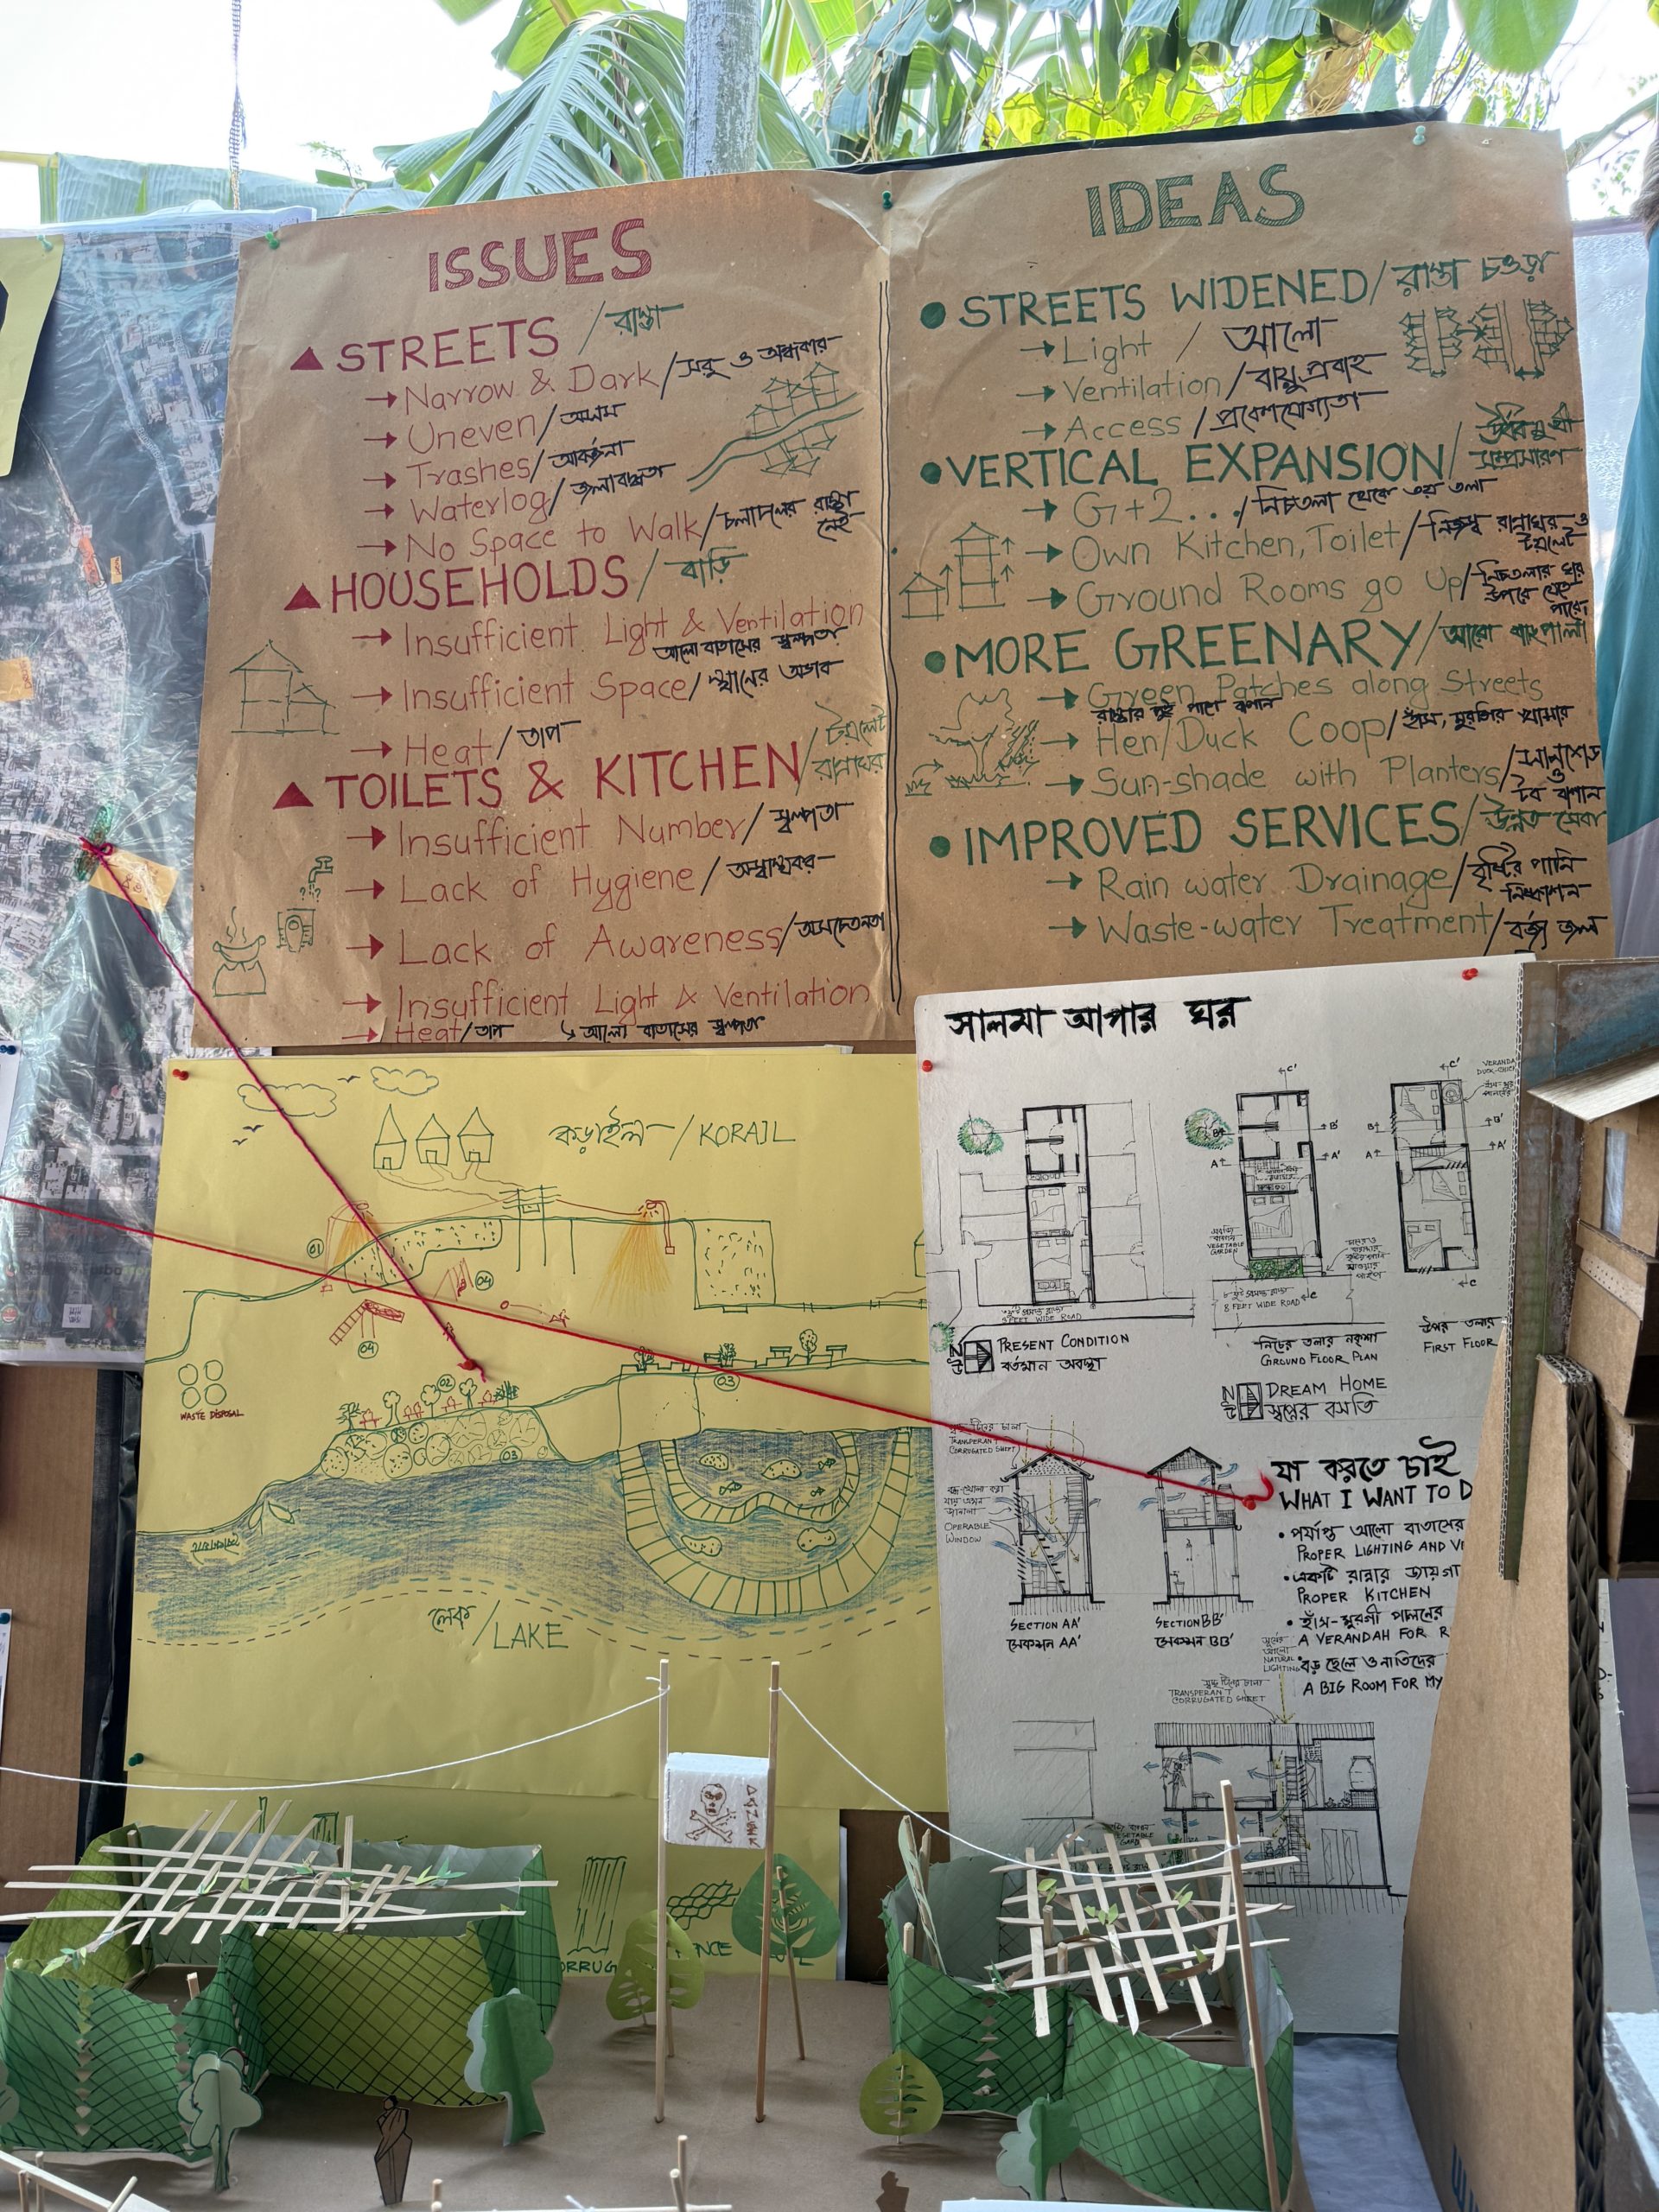 ISSUES
▲ STREETS / রাস্তা
→ Narrow & Dark / সরু ও অন্ধকার
→ Uneven / অসম
→ Trashes / আবর্জনা
→ Waterlog / জলাবদ্ধতা
→ No Space to Walk / চলাচলের রাস্তা নেই
▲ HOUSEHOLDS / বাড়ি
→ Insufficient Light & Ventilation
আলো বাতাসের স্বল্পতা
→ Insufficient Space / স্থানের অভাব
→ Heat / তাপ
▲ TOILETS & KITCHEN / টয়লেট রান্নাঘর
→ Insufficient Number / স্বল্পতা
→ Lack of Hygiene / অস্বাস্থ্যকর
→ Lack of Awareness / অসচেতনতা
→ Insufficient Light & Ventilation
→ Heat / তাপ ↳ আলো বাতাসের স্বল্পতা
IDEAS
• STREETS WIDENED / রাস্তা চওড়া
→ Light / আলো
→ Ventilation / বায়ুপ্রবাহ
→ Access / প্রবেশযোগ্যতা
• VERTICAL EXPANSION / উর্ধ্বমুখী সম্প্রসারণ
→ G+2... / নিচতলা থেকে ৩য় তলা
→ Own Kitchen, Toilet / নিজস্ব রান্নাঘর ও টয়লেট
→ Ground Rooms go Up / নিচতলার ঘর উপরে যেতে পারে
• MORE GREENARY / আরো গাছপালা
→ Green Patches along Streets
রাস্তার দুই পাশে বাগান
→ Hen/Duck Coop / হাঁস, মুরগির খামার
→ Sun-shade with Planters / সানশেড ও টব বাগান
• IMPROVED SERVICES / উন্নত সেবা
→ Rain water Drainage / বৃষ্টির পানি নিষ্কাশন
→ Waste-water Treatment / বর্জ্য জল
কড়াইল / KORAIL
01
04
04
02
03
03
WASTE DISPOSAL
লেক / LAKE
সালমা আপার ঘর
VERANDA
DUCK-CHICK
C'
C'
B
B'
B
B'
A
A'
A
A'
VEGETABLE
GARDEN
8 FEET WIDE ROAD
C
C
FEET WIDE ROAD
PRESENT CONDITION
বর্তমান অবস্থা
নিচের তলার নকশা
GROUND FLOOR PLAN
উপর তলার
FIRST FLOOR
DREAM HOME
স্বপ্নের বসতি
TRANSPERANT
CORRUGATED SHEET
OPERABLE
WINDOW
SECTION AA'
সেকশন AA'
SECTION BB'
সেকশন BB'
যা করতে চাই
WHAT I WANT TO D
• পর্যাপ্ত আলো বাতাসের
PROPER LIGHTING AND VE
• একটি রান্নার জায়গা
PROPER KITCHEN
• হাঁস-মুরগী পালনের
A VERANDAH FOR R
• বড় ছেলে ও নাতিদের
A BIG ROOM FOR MY
NATURAL
LIGHTING
TRANSPERANT
CORRUGATED SHEET
ORRUG
NCE